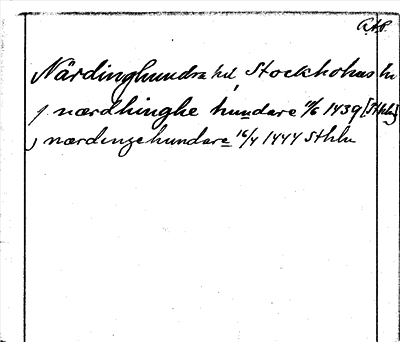 Närdinghundra hd, Stockholms ln
j nærdhinghe hundare 11/6 1439 [Sthlm]
j nærdingehundare 16/4 1444 Sthlm